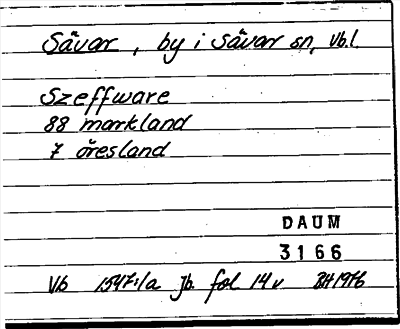 Sävar, by i Sävar sn, Vb.l.
Szeffware
88 markland
7 öresland
DAUM
3166
Vb 1547:1a Jb. fol 14 v BH 1976